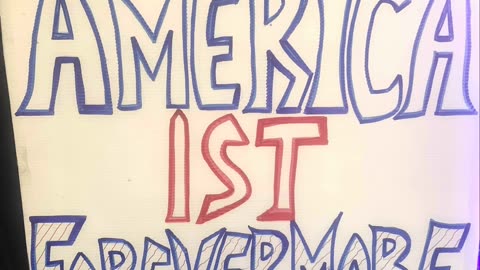 AMERICA
1ST
FOREVERMORE